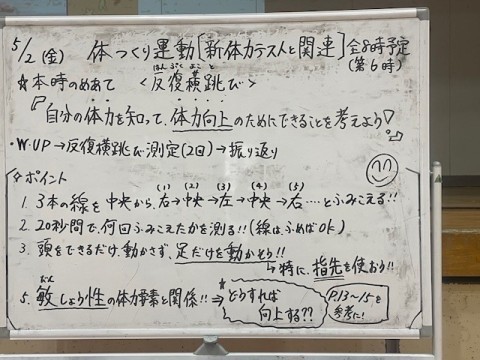 5/2(金) 体つくり運動[新体力テストと関連]全8時予定
(第6時)
☆本時のめあて <反復横跳び>
はんぷくよこと
『自分の体力を知って、体力向上のためにできることを考えよう!』
・W-UP→反復横跳び測定(2回)→振り返り
◇ポイント
(1) (2) (3) (4) (5)
1. 3本の線を中央から、右→中央→左→中央→右……とふみこえる!!
2. 20秒間で、何回ふみこえたかを測る!!(線は、ふめばOK)
3. 頭をできるだけ、動かさず、足だけを動かそう!!
→特に、指先を使おう!!
びん
5. 敏しょう性の体力要素と関係!!⇒
★どうすれば
向上する??
P.13〜15を
参考に!